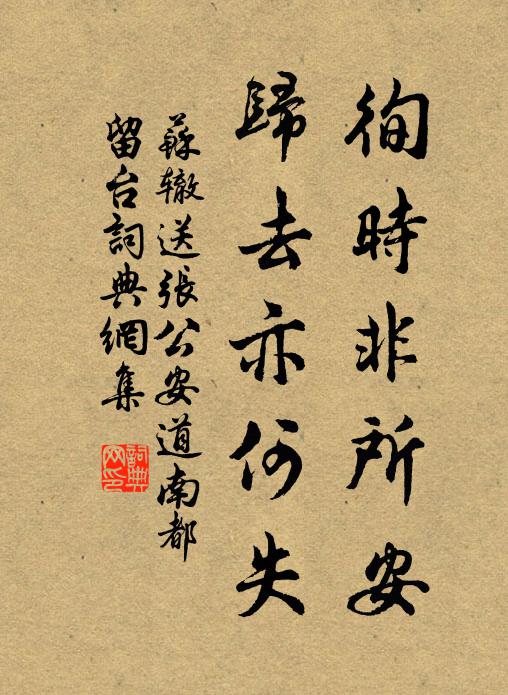 徇時非所安
歸去亦何失
蘇辙送張公安道南都
留台詞典網集
詞典
网印